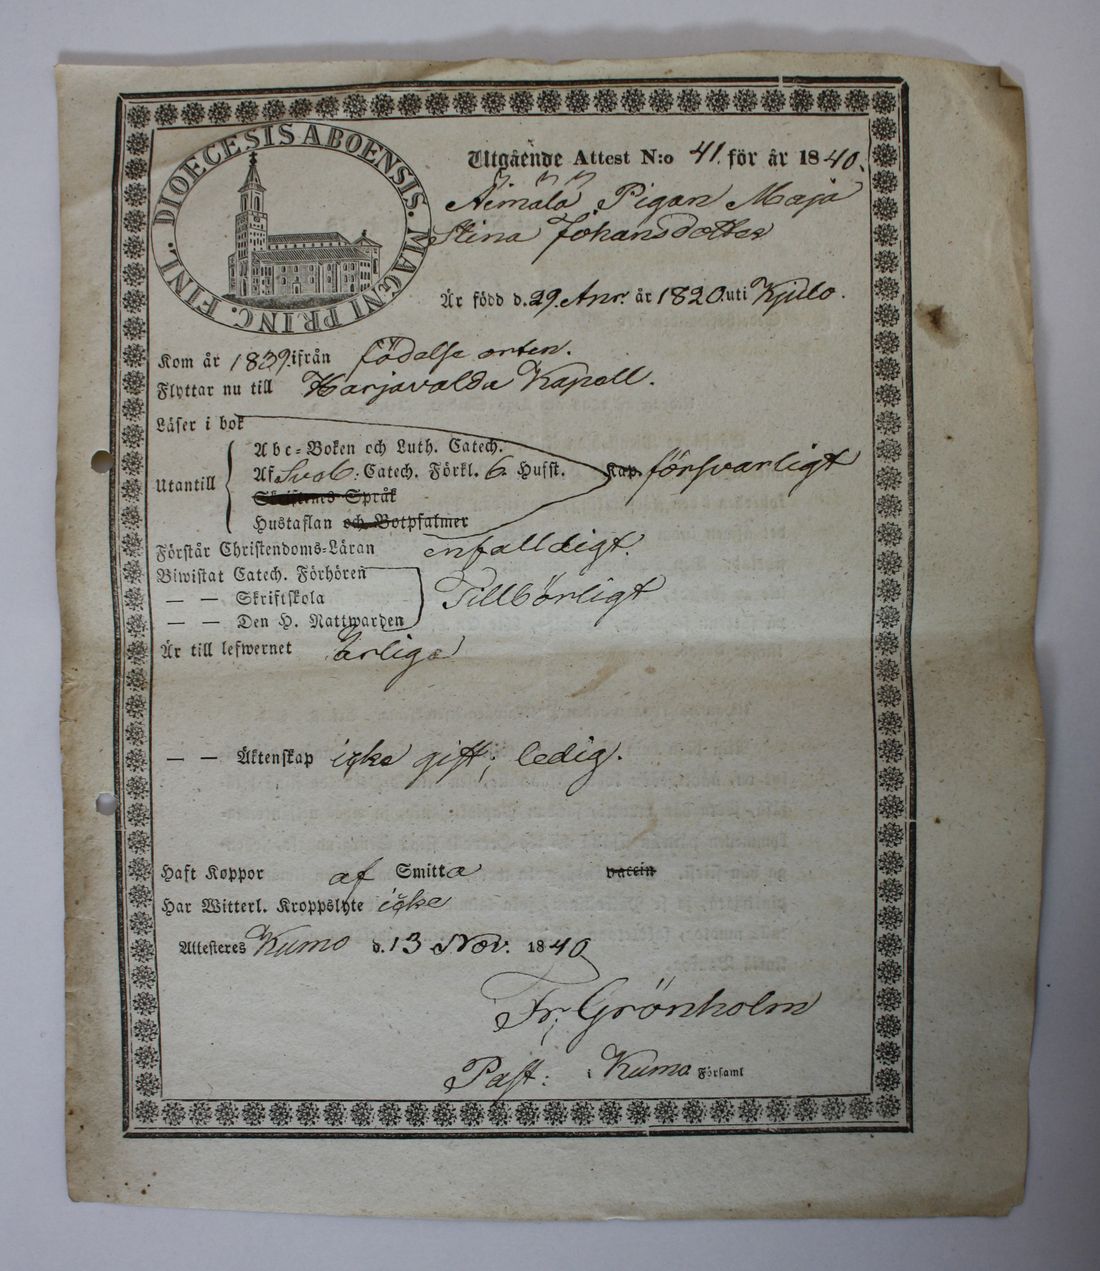 DIOECESIS ABOENSIS. MAGNI PRINC. FINL.
Utgående Attest N:o 41. för år 1840.
Äimälä Pigan Maja
Stina Johansdotter
Är född d. 29. år 1820. uti Kjulo.
Kom år 1839. ifrån födelse orten.
Flyttar nu till Harjavalda Kapell.
Läser i bok
Abc-Boken och Luth. Catech.
Utantill Af Sveb: Catech. Förkl. 6 Husst. Kap. försvarligt
Skriftens Språk
Hustaflan och Botpsalmer
Förstår Christendoms-Läran enfalldigt.
Biwistat Catech. Förhören
— — Skriftskola Tillbörligt
— — Den H. Nattwarden
Är till lefwernet ärliga
— — Äktenskap icke gift; ledig.
Haft Koppor af Smitta vaccin
Har Witterl. Kroppslyte icke
Attesteres Kumo d. 13 Nov. 1840
Fr: Grönholm
Past: i Kumo Församl